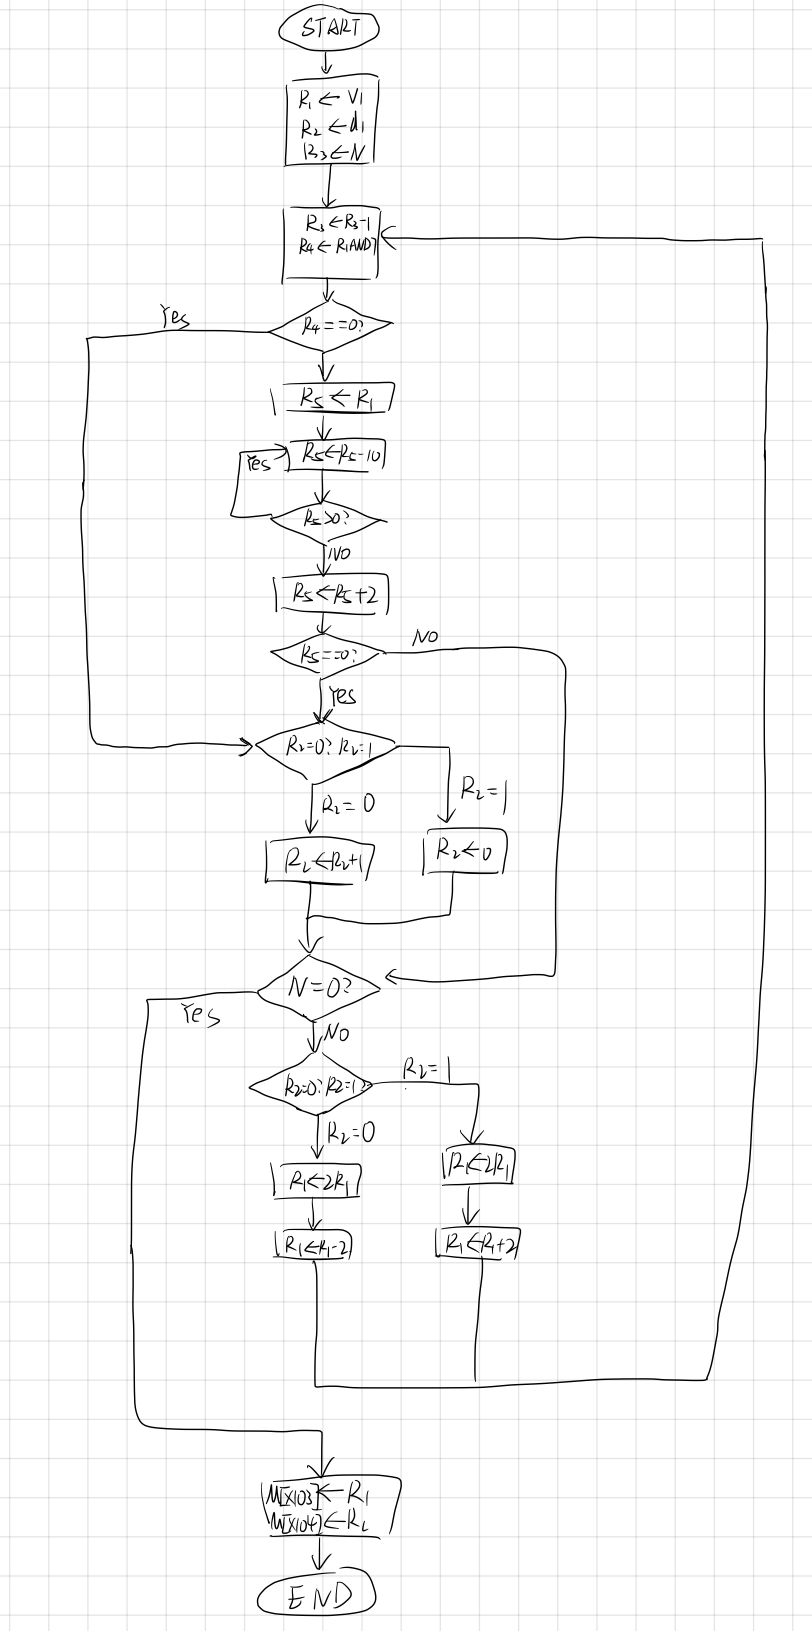 START
R₁ ← V₁
R₂ ← d₁
R₃ ← N
R₃ ← R₃-1
R₄ ← R₁AND7
Yes
R₄==0?
R₅ ← R₁
R₅←R₅-10
Yes
R₅>0?
NO
R₅←R₅+2
R₅==0?
NO
Yes
R₂=0? R₂=1
R₂=0
R₂=1
R₂←R₂+1
R₂←0
N=0?
Yes
NO
R₂=0? R₂=1?
R₂=1
R₂=0
R₁←2R₁
R₁←2R₁
R₁←R₁-2
R₁←R₁+2
M[x103]←R₁
M[x104]←R₂
END